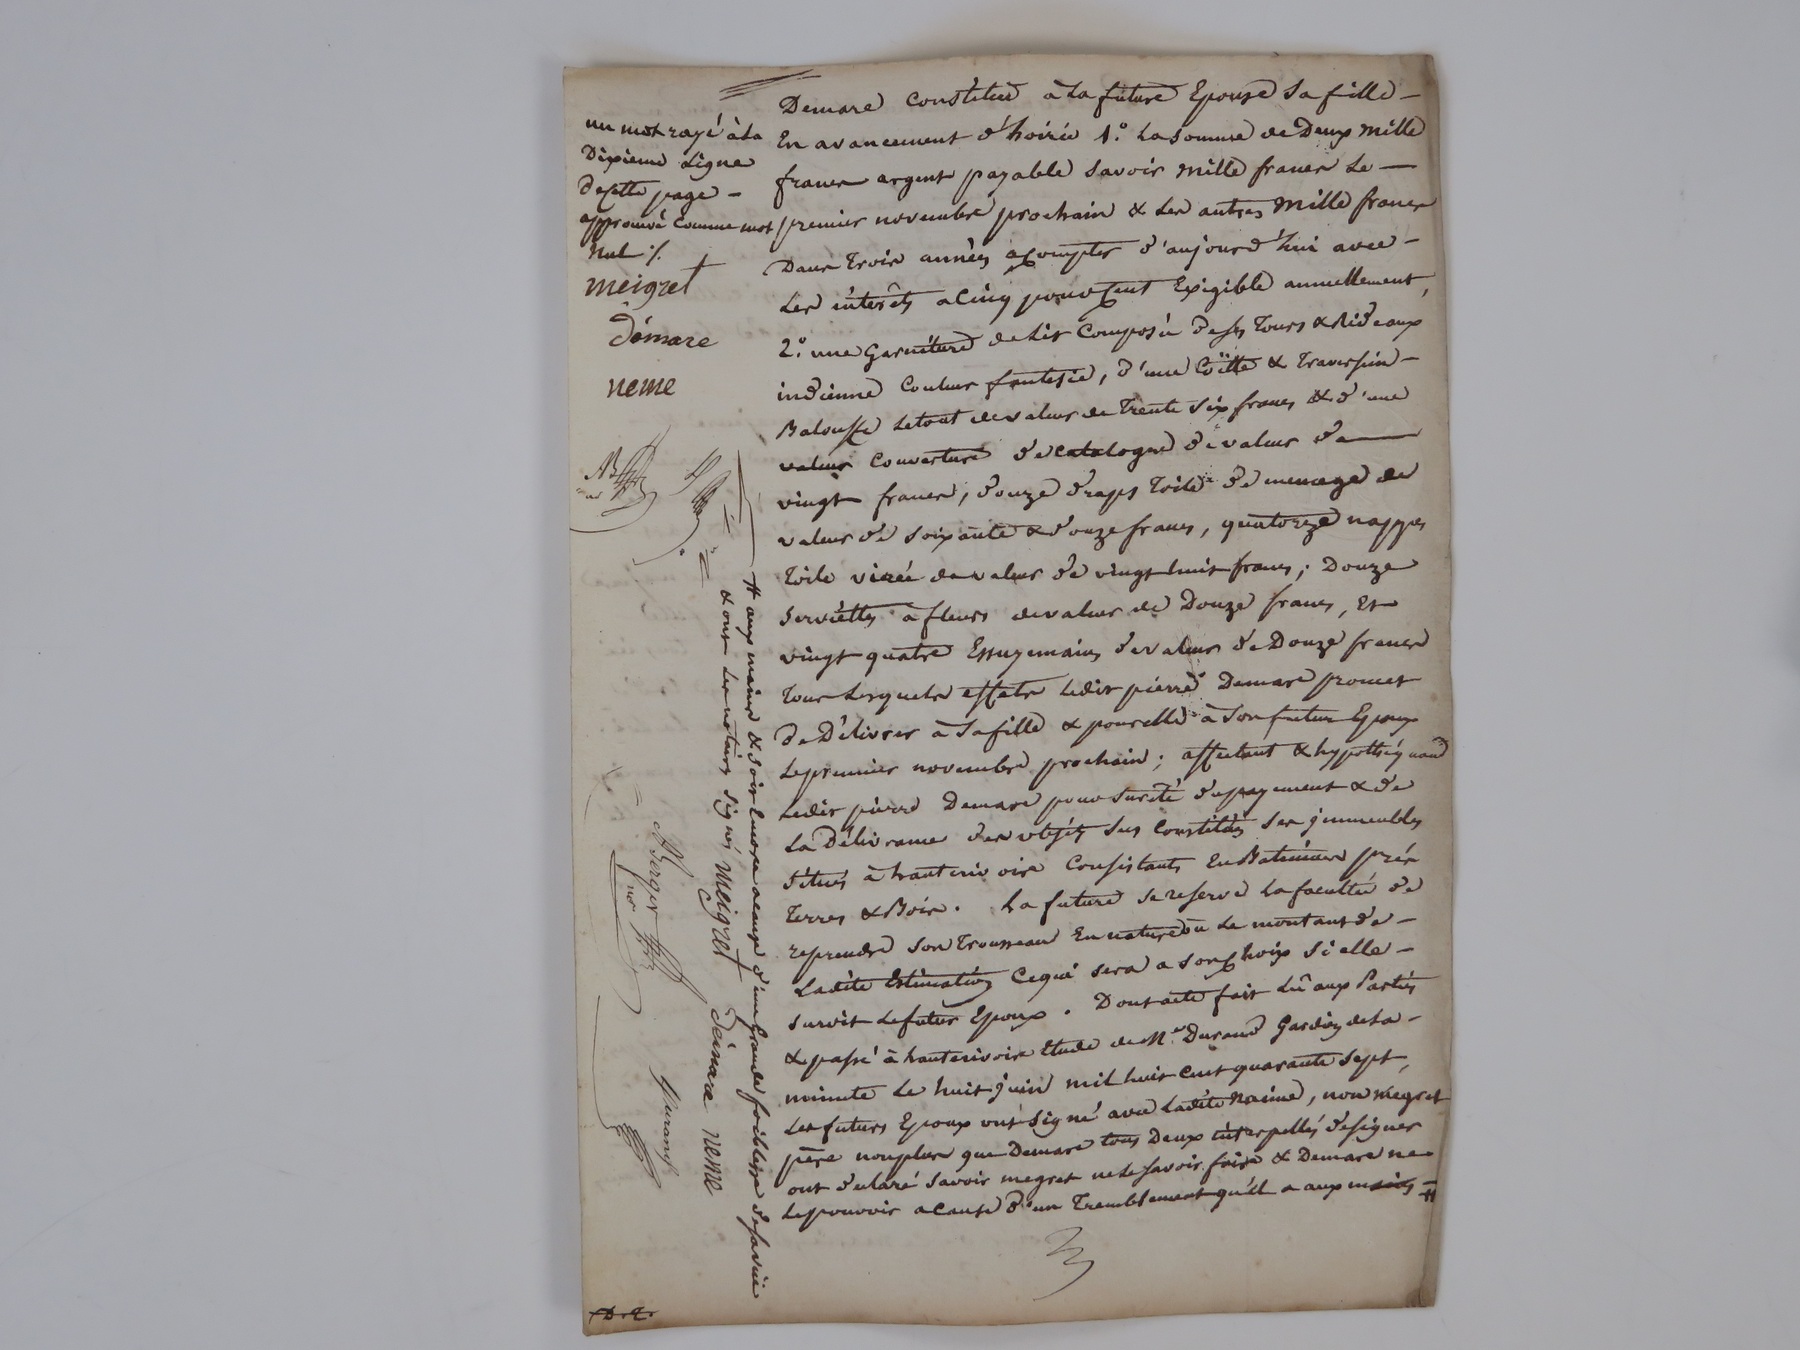 Demare constitue à la future Epouse sa fille
En avancement d'hoirie 1.° La somme de Deux mille
francs argent payable savoir mille francs le
premier novembre prochain & les autres mille francs
Dans trois années acompter d'aujourd'hui avec
Les intérêts a cinq pour cent Exigible annuellement,
2.° une Garniture de lit Composée de ses tours & Rideaux
indienne Couleur fantesie, d'une Coïtte & Traversin
Balouffe le tout de valeur de Trente six francs & d'une
valeur Couverture de catalogne de valeur de
vingt francs, douze draps toile de menage de
valeur de soixante & douze francs, quatorze nappes
toile de valeur de vingt huit francs; Douze
serviettes à fleurs de valeur de Douze francs, Et
vingt quatre Essuyemains de valeur de Douze francs
tous lesquels effets ledit pierre Demare promet
de Délivrer à sa fille & pour elle à son futur Epoux
le premier novembre prochain; affectant & hypothéquand
ledit pierre Demare pour sureté du payement & de
la Délivrance des objets sus Constitués ses jmmeubles
situés à hauterivoire Consistants En Batiments prés
Terres & Bois. La future se reserve la faculté de
reprendre son Trousseau En nature ou le montant de
Ladite Estimation Ce qui sera a son choix si elle
survit le futur Epoux. Dont acte fait Lû aux Parties
& passé à hauterivoire Etude de M.e Durand Gardien de la
minute le huit juin mil huit cent quarante sept,
Les futurs Epoux ont signé avec Ladite Naime, non megret
père non plus que Demare tous Deux interpellés de signer
ont déclaré savoir megret ne le savoir faire & Demare ne
le pouvoir a cause d'un Tremblement qu'il a aux mains #
un mot rayé à la
Dixieme Ligne
de cette page
approuvé Comme mot
Nul ./.
meigret
démare
neme
# aux mains & soit Encore a cause d'une grande foiblesse de sa vüe
& ont les notaires signés meigret demare neme
Berger
no.re
Durand